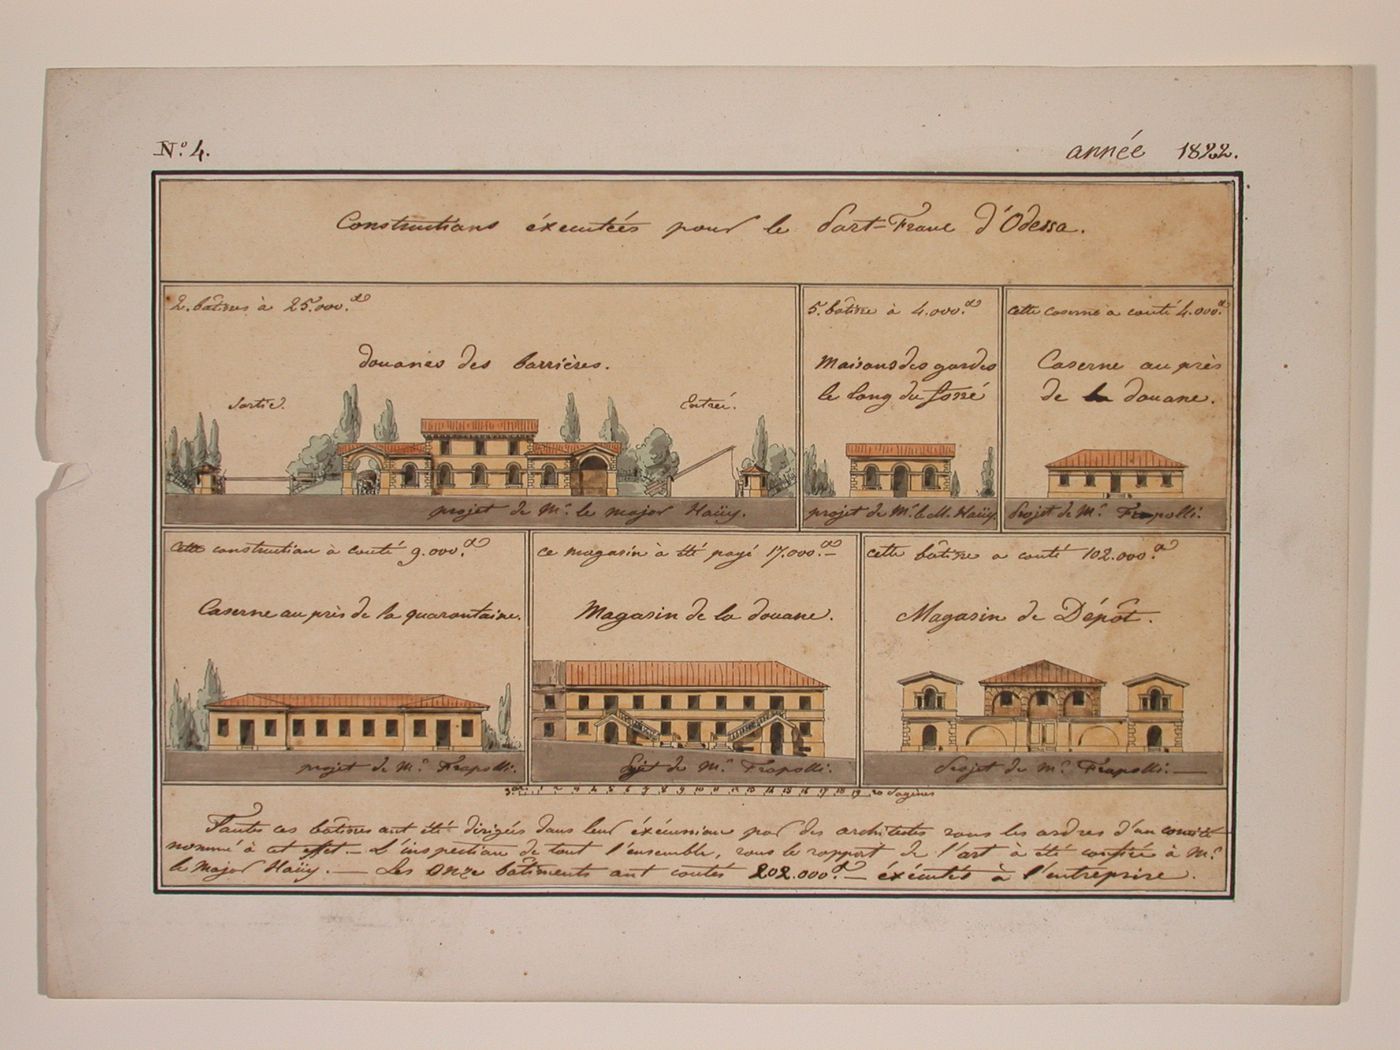 N.º 4.
année 1822.
Constructions éxécutées pour le Port-Franc d'Odessa.
2. bâtises à 25.000.
douanes des barrières.
Sortie.
Entrée.
projet de Mr. le major Haüy.
5. bâtise à 4.000.
Maisons des gardes
le long du fossé
projet de Mr. le M. Haüy
cette caserne a couté 4.000.
Caserne au près
de la douane.
Projet de Mr. Frapolli.
Cette construction à couté 9.000.
Caserne au près de la quarantaine.
projet de Mr. Frapolli.
ce magasin à été payé 17.000.
Magasin de la douane.
de Mr. Frapolli.
cette bâtisse a couté 102.000.
Magasin de Dépôt.
Projet de Mr. Frapolli.
1 2 3 4 5 6 7 8 9 10 11 12 13 14 15 16 17 18 19 20 Sagènes
Toutes ces bâtises ont été dirigés dans leur éxécussion par des architectes sous les ordres d'un comité
nommé à cet effet. — L'inspection de tout l'ensemble, sous le rapport de l'art à été confiée à Mr.
le Major Haüy. — Les Onze bâtiments ont coutés 202.000. — éxécutés à l'entreprise.